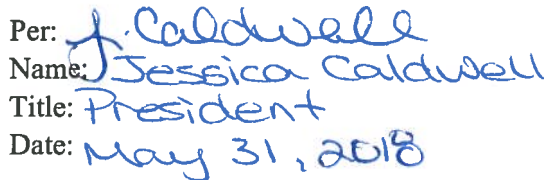 Per: J. Caldwell
Name: Jessica Caldwell
Title: President
Date: May 31, 2018